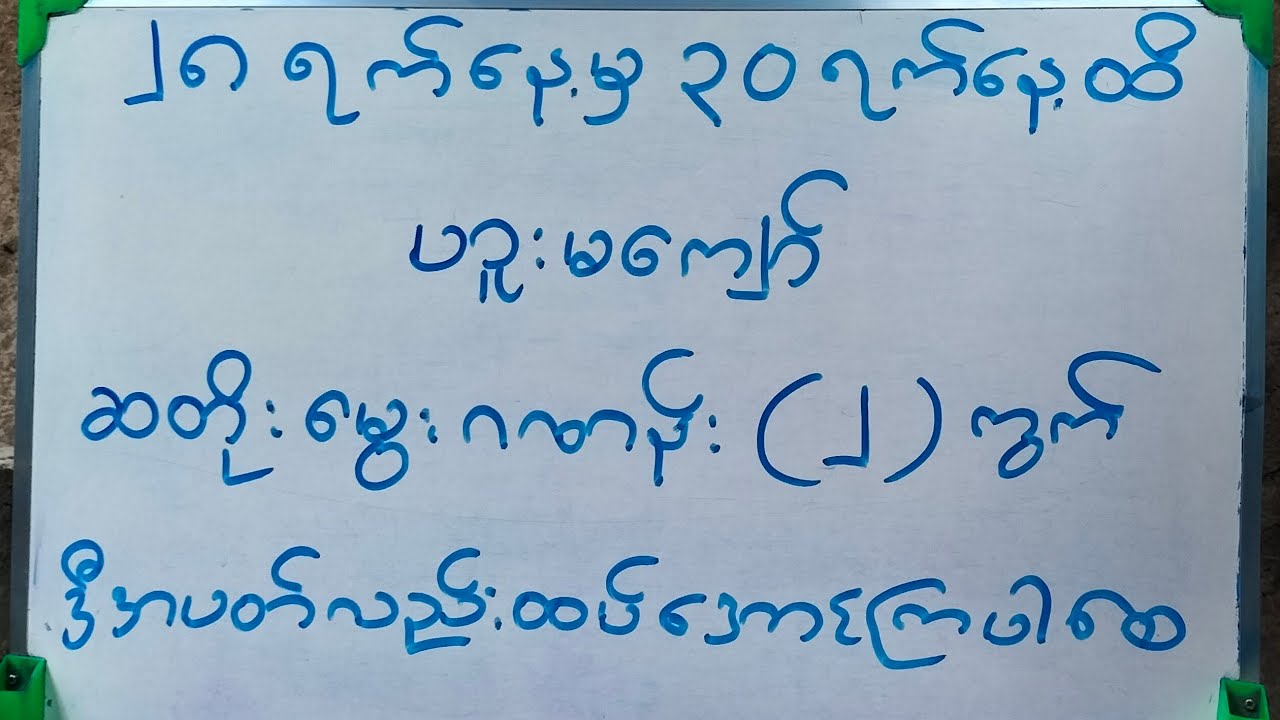 ၂၈ ရက်နေ့မှ ၃၀ ရက်နေ့ထိ
ပဉူးမကျော်
ဆတိုးမွေးဂဏာန်း (၂) ကွက်
ဒီအပတ်လည်းထပ်အောင်ကြပါစေ